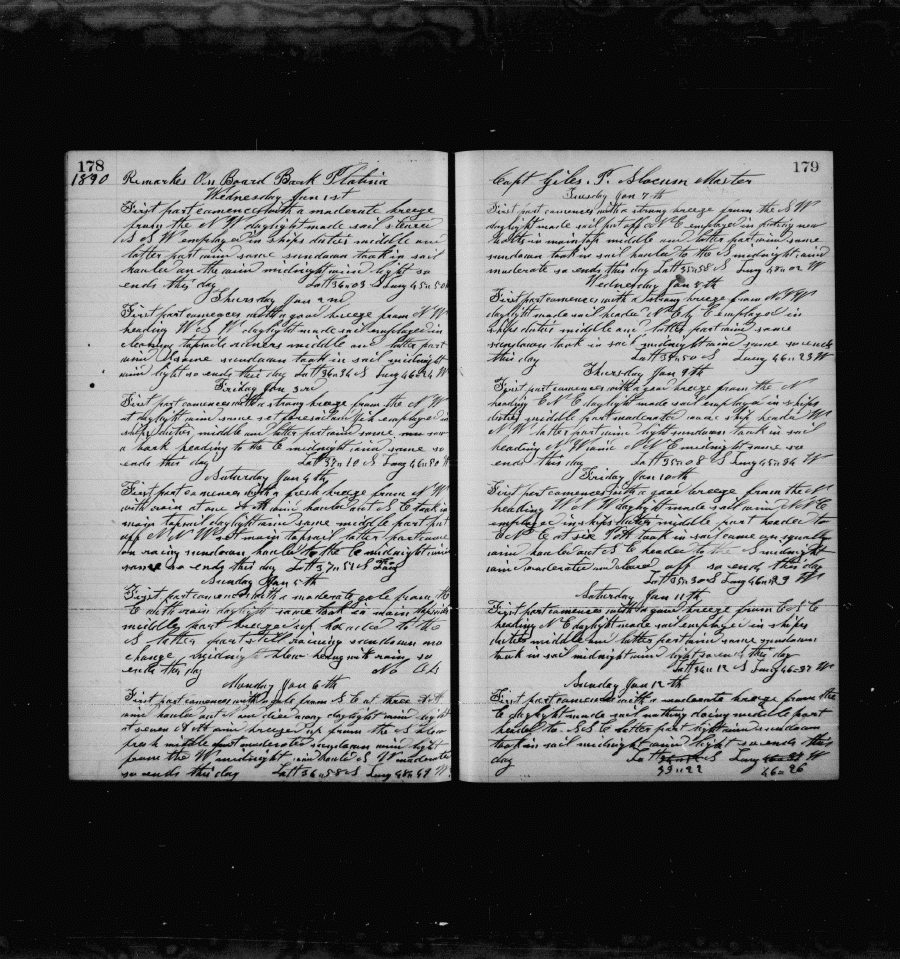 178
1890 Remarks On Board Bark Platina
Wednesday Jan 1st
First part comences with a moderate breeze
from the N W daylight made sail steared
S S W employed in ships duties middle and
latter part wind same sundown took in sail
hauled on the wind midnight wind light so
ends this day Latt 36 " 03 S Long 45 "
Thursday Jan 2nd
First part comences with a good breeze from N W
heading W S W daylight made sail employed in
cleaning middle and latter part
wind same sundown took in sail midnight
wind light so ends this day Latt 36 " 34 S Long 46 " 24 W
Friday Jan 3rd
First part comences with a strong breeze from the N W
at daylight wind same set foresail and jib employed in
ships duties middle and latter part wind same saw
a bark heading to the E midnight wind same so
ends this day Latt 37 " 10 S Long 46 " 50 W
Saturday Jan 4th
First part comences with a fresh breeze from N W
with rain at one A M wind hauled out S E took in
main topsail daylight wind same middle part
off N N W set main topsail latter part came
on racing sundown hauled to the E midnight wind
same so ends this day Latt 37 " 51 S Long
Sunday Jan 5th
First part comences with a moderate gale from the
E with rain daylight same took in main topsail
middle part breezed up hauled to the
S latter part still raining sundown no
change midnight blew heavy with rain so
ends this day No Obs
Monday Jan 6th
First part comences with a gale from S E at three A M
wind hauled out N and died away daylight wind light
at seven A M wind breezed up from the S blew
fresh middle part moderated sundown wind light
from the W midnight wind hauled S W moderate
so ends this day Latt 36 " 58 S Long 48 " 49 W
179
Capt Giles. P. Slocum Master
Tuesday Jan 7th
First part comences with a strong breeze from the S W
daylight made sail put off N E employed in putting new
in main top middle and latter part wind same
sundown took in sail hauled to the S midnight wind
moderate so ends this day Latt 35 " 58 S Long 48 " 02 W
Wednesday Jan 8th
First part comences with a strong breeze from N W
daylight made sail headed N E by E employed in
ships duties middle and latter part wind same
sundown took in sail midnight wind same so ends
this day Latt 35 " 50 S Long 46 " 23 W
Thursday Jan 9th
First part comences with a good breeze from the N
heading E N E daylight made sail employed in ships
duties middle part moderate wind ship headed W
N W latter part wind light sundown took in sail
heading N W wind N N E midnight same so
ends this day Latt 35 " 08 S Long 45 " 34 W
Friday Jan 10th
First part comences with a good breeze from the N
heading W N W daylight made sail wind N N E
employed in ships duties middle part headed to
E N E at six P M took in sail came on squally
wind hauled out S E headed to the S midnight
wind moderated and cleared off so ends this day
Latt 35 " 30 S Long 46 " 19 W
Saturday Jan 11th
First part comences with a good breeze from E S E
heading N E daylight made sail employed in ships
duties middle and latter part wind same sundown
took in sail midnight wind light so ends this day
Latt 34 " 12 S Long 46 " 37 W
Sunday Jan 12th
First part comences with a moderate breeze from the
E daylight made sail nothing doing middle part
headed to S S E latter part light wind sundown
took in sail midnight wind light so ends this
day Latt S Long W
33 " 22 46 " 26